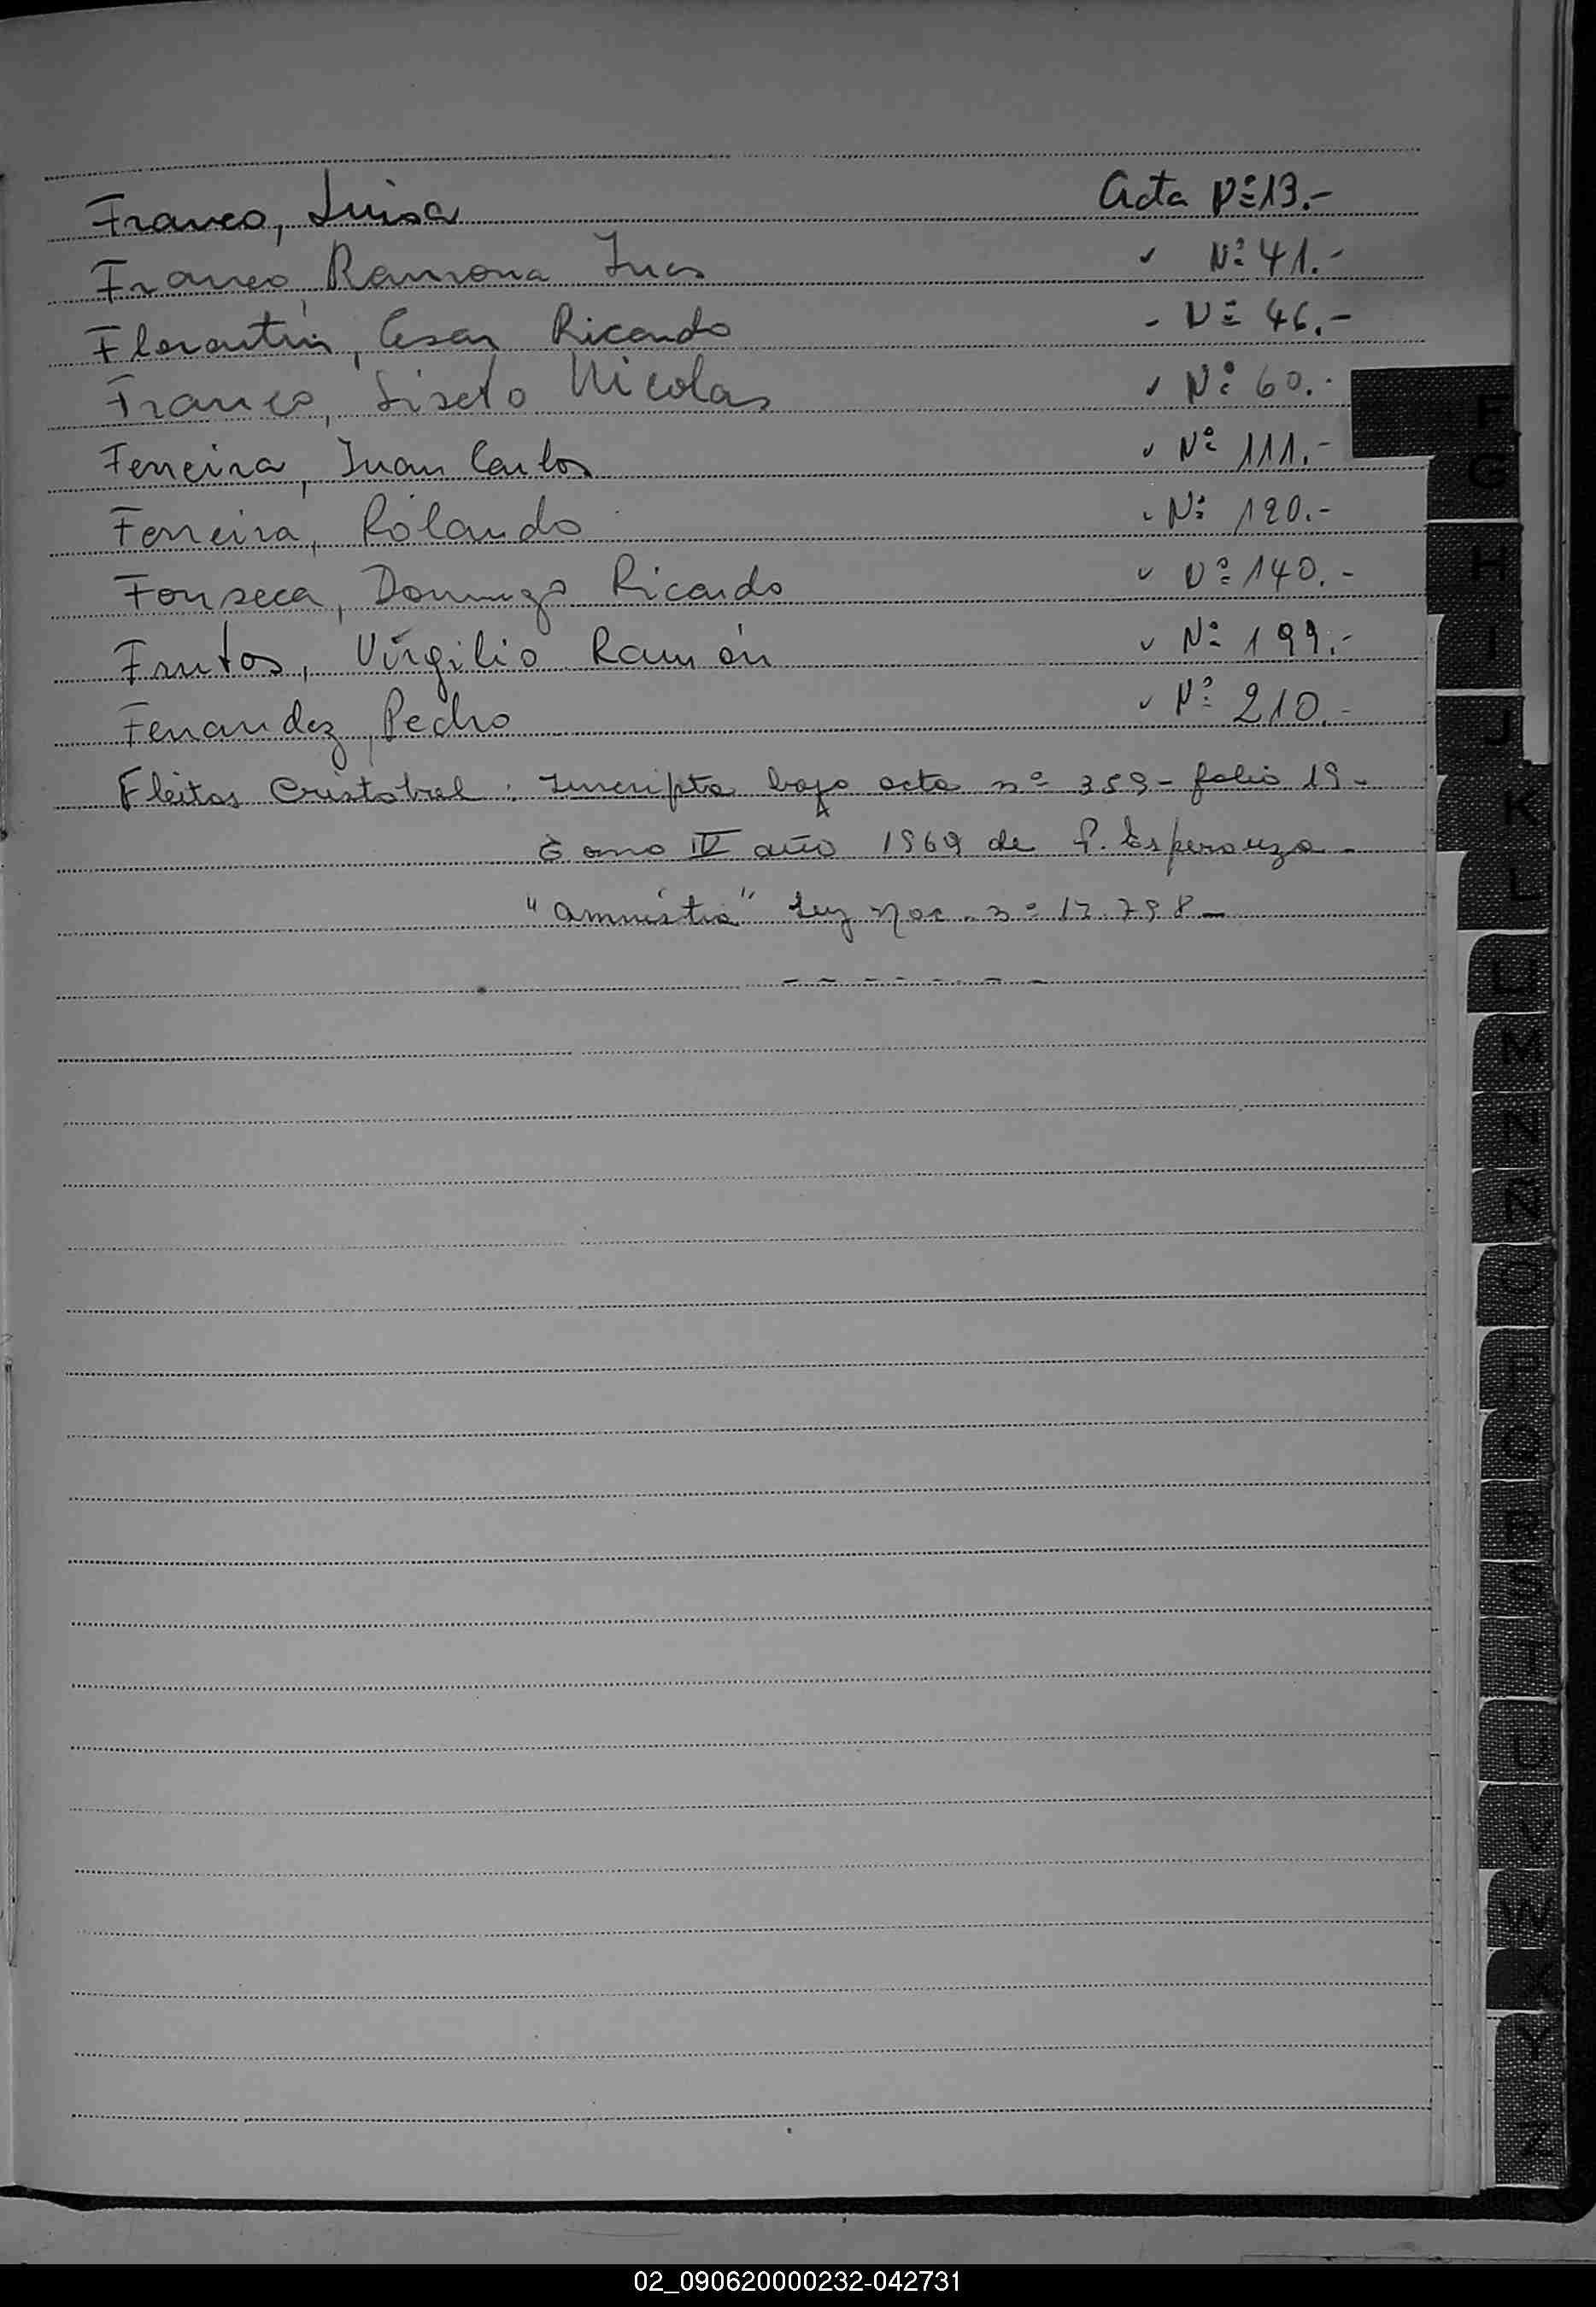 Franco, Luisa Acta Nº 13.-
Franco, Ramona Ines " Nº 41.-
Florentín, Cesar Ricardo - Nº 46.-
Franco, Sixto Nicolas " Nº 60.-
Ferreira, Juan Carlos " Nº 111.-
Ferreira, Rolando " Nº 120.-
Fonseca, Domingo Ricardo " Nº 140.-
Frutos, Virgilio Ramón " Nº 199.-
Fernandez, Pedro " Nº 210.-
Fleitas Cristobal : Inscripta bajo acta nº 359 - folio 19 -
Tomo IV año 1969 de P. Esperanza -
"amnistia" Ley nac. nº 17.798 -
F
G
H
I
J
K
L
LL
M
N
Ñ
O
P
Q
R
S
T
U
V
W
X
Y
Z
02_090620000232-042731